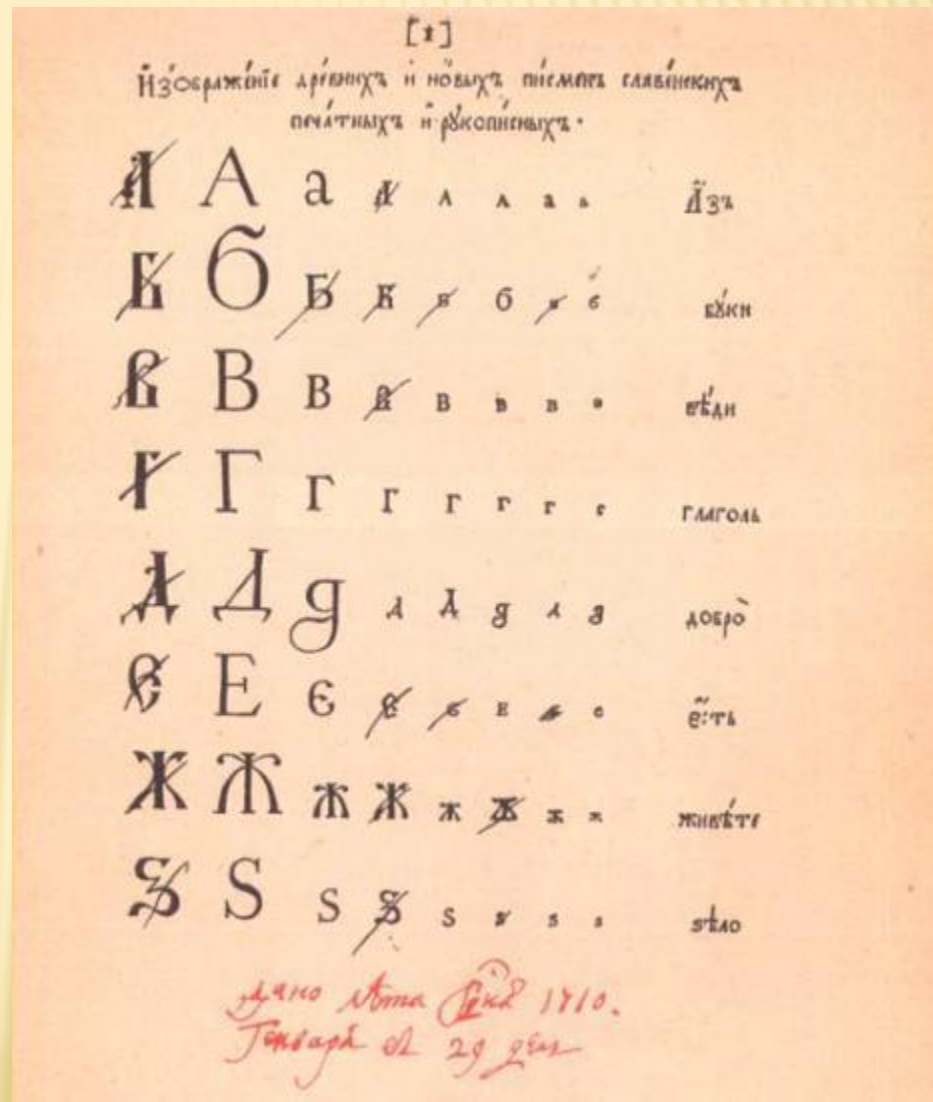 [1]
И҆зѡбраже́нїе дре́внихъ и҆ но́выхъ пи́сменъ славе́нскихъ
печа́тныхъ и҆ рꙋкопи́сныхъ.
А А а А А А а а А҆зъ
Б Б Б Б Б Б Б Б бꙋ́ки
В В В В В В В В вѣ́ди
Г Г Г Г Г Г Г Г глаголь
Д Д д Д Д д Д д добро̀
Є Е є Є Є Е Є Є
Ж Ж ж Ж ж Ж ж ж живѣ́те
Ѕ Ѕ ѕ Ѕ ѕ ѕ ѕ ѕ ѕѣло
дано лѣта 1710.
Генваря 29 дня